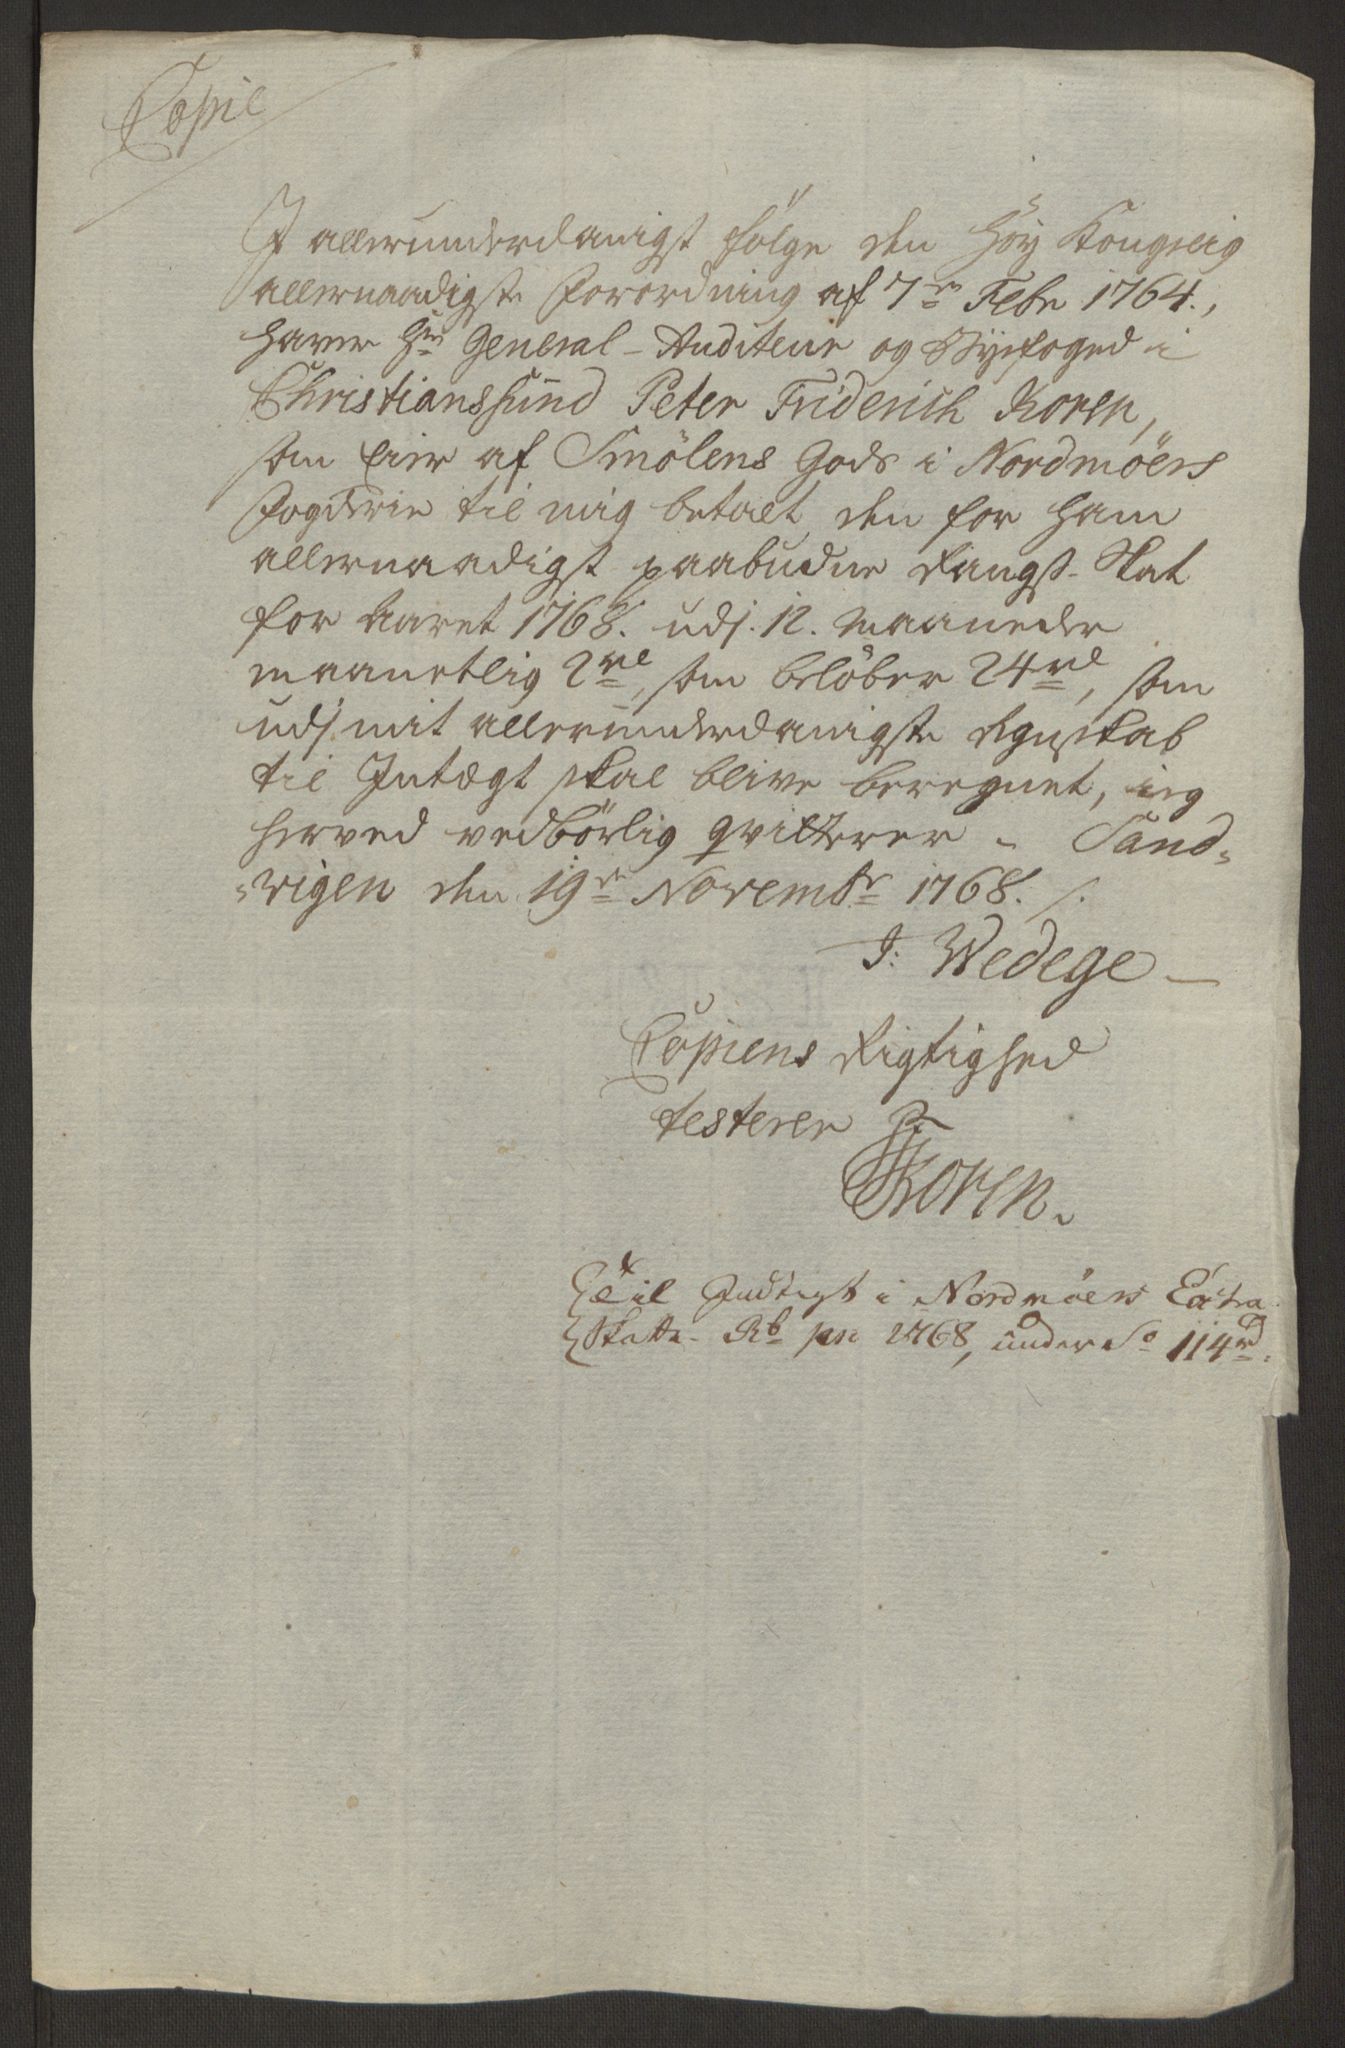 Copie
I allerunderdanigst fölge den höy Kongelig
allernaadigste Forordning af 7de Febr 1764.,
haver Hr General-Auditeur og Byefoged i
Christianssund Peter Friderich Koren,
som Eier af Smölens Gods i Nordmöers
Fogderie til mig betalt den for ham
allernaadigst paabudne Rangs-Skat
for Aaret 1768. udj. 12. Maaneder
maanetlig 2rd, som belöber 24rd, som
udj mit allerunderdanigste Regnskab
til Intægt skal blive beregnet, ieg
herved vedbörlig qvitterer. Sand-
-vigen den 19de Novembr 1768. /.
J: Wedege
Copiens Rigtighed
testerer
PF Koren.
til Indtegt i Nordmöers Extra
Skatte-Rb pro 1768, under No 114